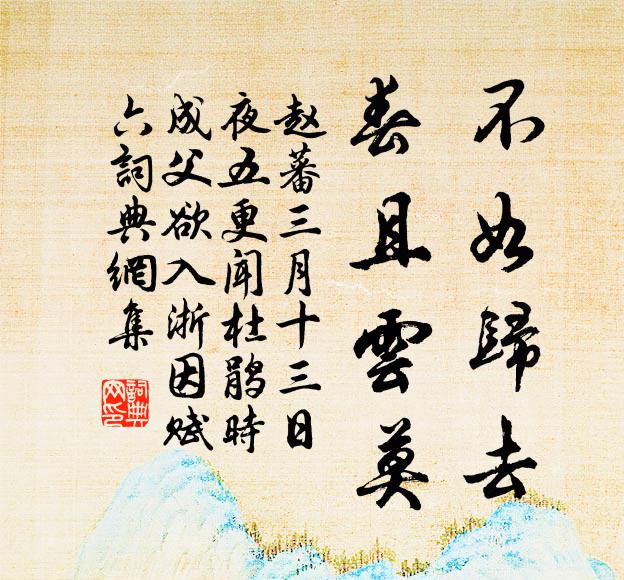 不如歸去
春且雲莫
赵蕃三月十三日
夜五更闻杜鹃時
成父欲入浙因赋
六詞典網集
詞典
网印